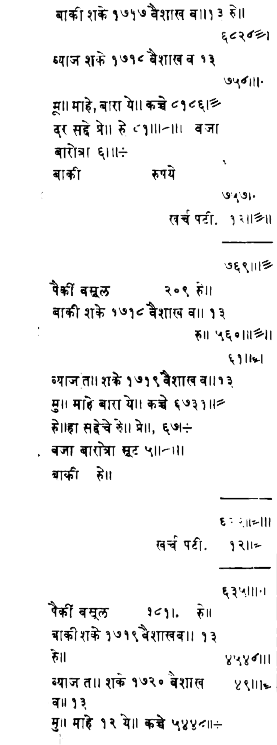 बाकी शके १७५७ वैशाख व॥१३ रु॥
६८२०॥≡।
व्याज शके १७१८ वैशाख व १३
७५०॥।·
मू॥ माहे, बारा ये॥ कच्चे ८१८६।≡
दर सद्दे प्रे॥ रु ८१॥।-॥। वजा
बारोत्रा ६॥।÷
बाकी रुपये
७५७।·
खर्च पटी. १२॥≡॥
७६९॥।≡
पैकीं वसूल २०९ रु॥
बाकी शके १७१८ वैशाख व॥ १३
रु॥ ५६०॥≡॥
व्याज त॥ शके १७१९ वैशाख व॥१३
मु॥ माहे बारा ये॥ कच्चे ६७३१॥=
रु॥हा सद्देचे रु॥ प्रे॥, ६७।÷
वजा बारोत्रा सूट ५॥-॥।
बाकी रु॥
खर्च पटी. १२॥=
६३५॥।·
पैकीं वसूल १८१।. रु॥
बाकी शके १७१९ वैशाखव॥ १३
रु॥ ४५४०॥।
व्याज त॥ शके १७२० वैशाख
व॥ १३
मु॥ माहे १२ ये॥ कच्चे ५४४८॥÷